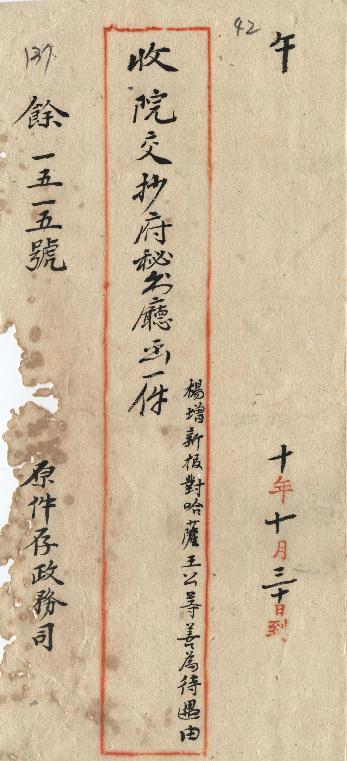 42
午
十年十月三十日到
收院交抄府秘書廳函一件
楊增新报對哈薩王公等善為待遇由
137
餘一五一五號
原件存政務司